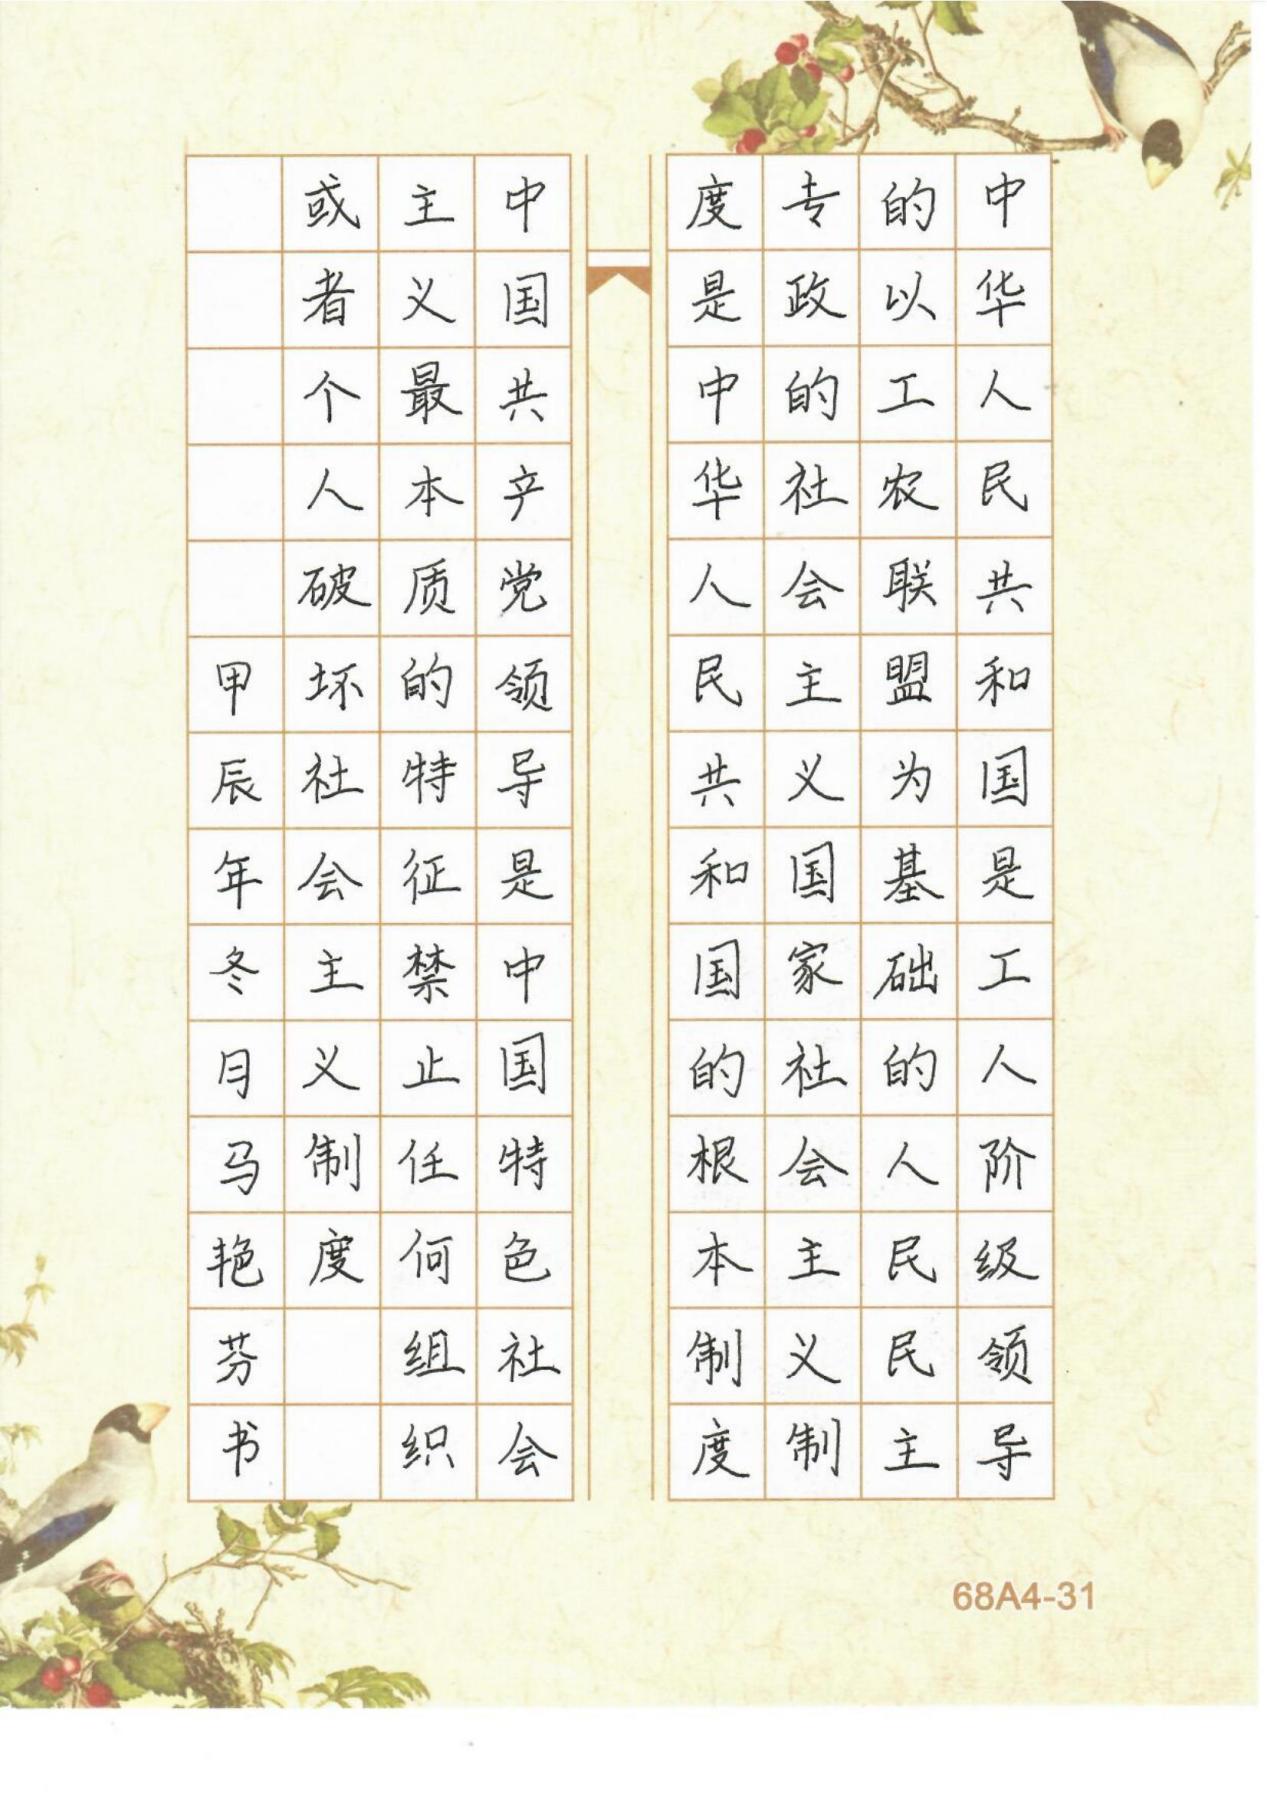 中华人民共和国是工人阶级领导
的以工农联盟为基础的人民民主
专政的社会主义国家社会主义制
度是中华人民共和国的根本制度
中国共产党领导是中国特色社会
主义最本质的特征禁止任何组织
或者个人破坏社会主义制度
甲辰年冬月马艳芬书
68A4-31